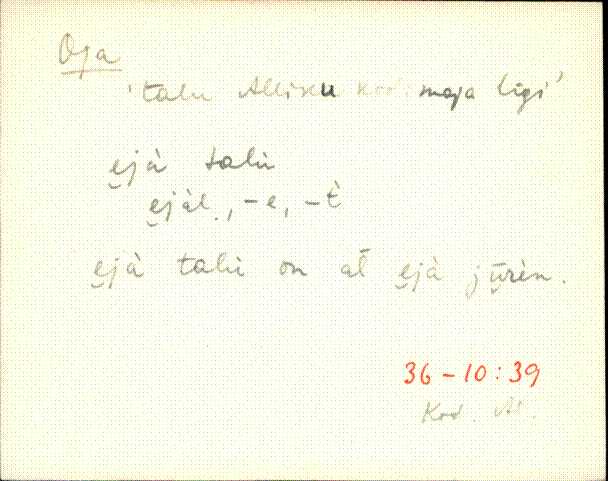 Oja
'talu Alliku kod. maja ligi'
e̮jà talù
e̮jàl., -e, -t̀
e̮jà talù on al̄ e̮jà jūrèn.
36-10:39
Kod.